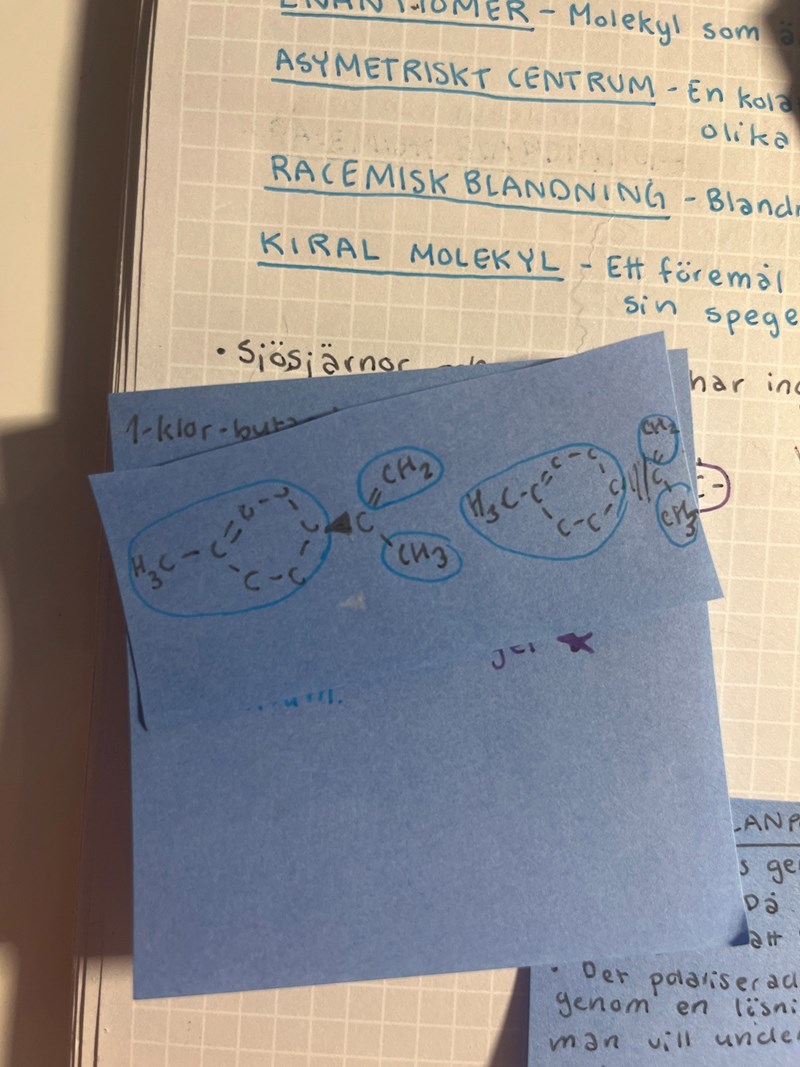 ENANTIOMER - Molekyl som ä
ASYMETRISKT CENTRUM - En kola
olika
RACEMISK BLANDNING - Bland
KIRAL MOLEKYL - Ett föremål
sin spege
• Sjösjärnor
har in
1-klor-but
CH2
H3C-C C-C C C-C C CH3
CH2
H3C-C C-C C C-C C CH3
C-
LANP
s ge
Då
att
• Der polariserad
genom en lösni
man vill unde